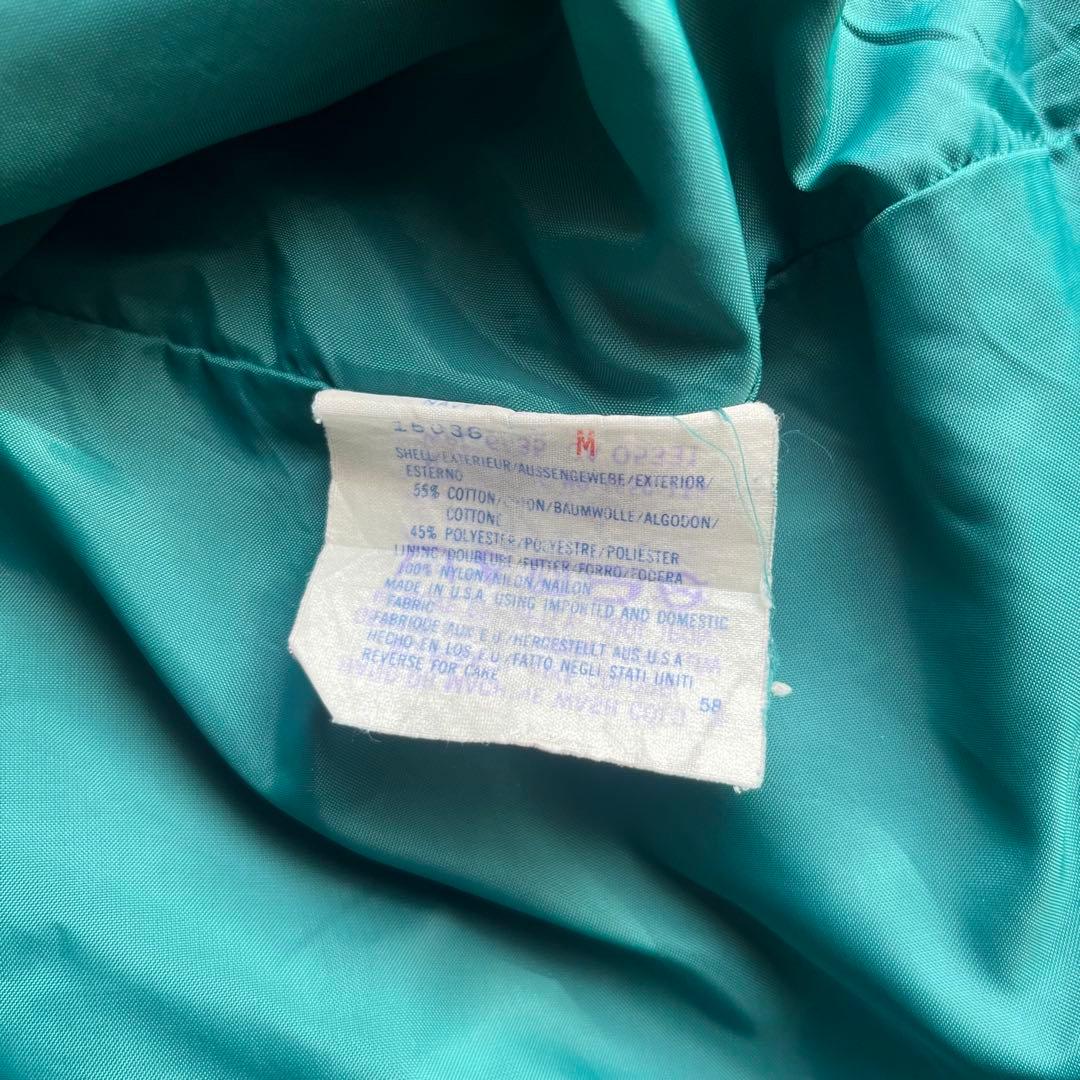 16036 M
SHELL/EXTERIEUR/AUSSENGEWEBE/EXTERIOR/
ESTERNO
55% COTTON/ /BAUMWOLLE/ALGODON/
COTTONE
45% POLYESTER/POLYESTRE/POLIESTER
LINING/DOUBLURE/FUTTER/FORRO/FODERA
100% NYLON/NILON/NAILON
MADE IN U.S.A. USING IMPORTED AND DOMESTIC
FABRIC
FABRIQUE AUX E.U./HERGESTELLT AUS U.S.A
HECHO EN LOS E.U./FATTO NEGLI STATI UNITI
REVERSE FOR CARE 58